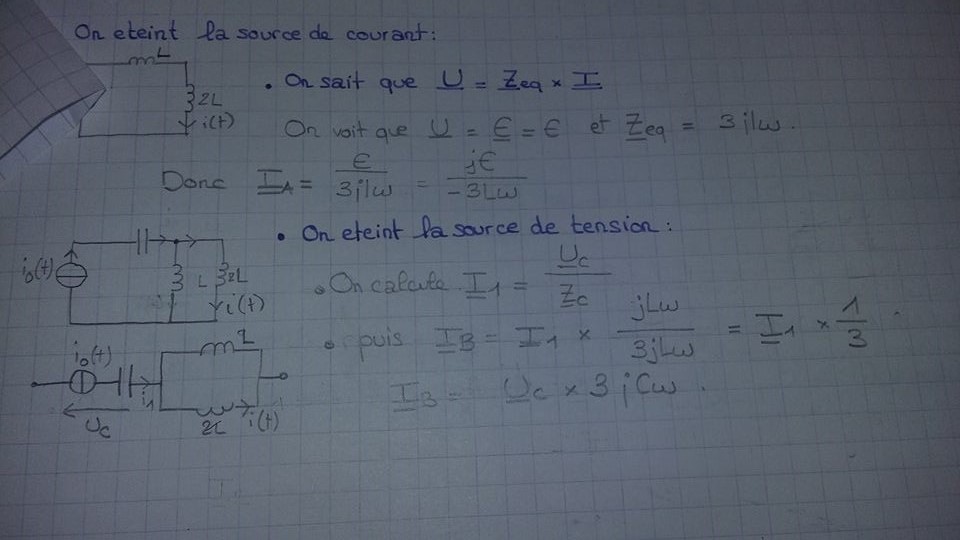 On eteint la source de courant:
L
2L
i(t)
• On sait que U = Zeq × I
On voit que U = E = E et Zeq = 3jlω.
Donc I_A = E/3jlω = jE/-3Lω
• On eteint la source de tension:
i₀(t)
L
2L
i(t)
• On calcule I₁ = Uc/Zc
• puis I_B = I₁ × jLω/3jLω = I₁ × 1/3
I_B = Uc × 3jCω.
i₀(t)
L
i₁
Uc
2L
i(t)